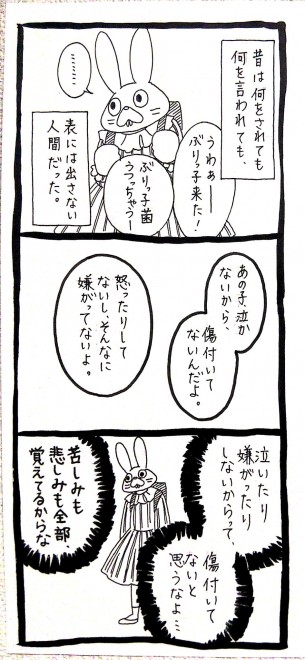 昔は何をされても
何を言われても、
………
うわぁー
ぶりっ子来た！
ぶりっ子菌
うつっちゃうー
表には出さない
人間だった。
あの子、泣か
ないから、
傷付いて
ないんだよ。
怒ったりして
ないし、そんなに
嫌がってないよ。
泣いたり
嫌がったり
しないからって、
傷付いて
ないと
思うなよ…
苦しみも
悲しみも全部、
覚えてるからな